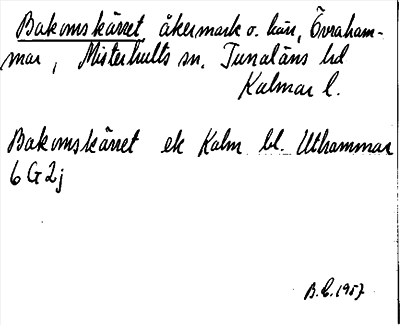 Bakomskärret åkermark o. kärr, Övraham-
mar, Misterhults sn. Tunaläns hd
Kalmar l.
Bakomskärret ek Kalm bl. Uthammar
6 G 2j
B.E. 1957